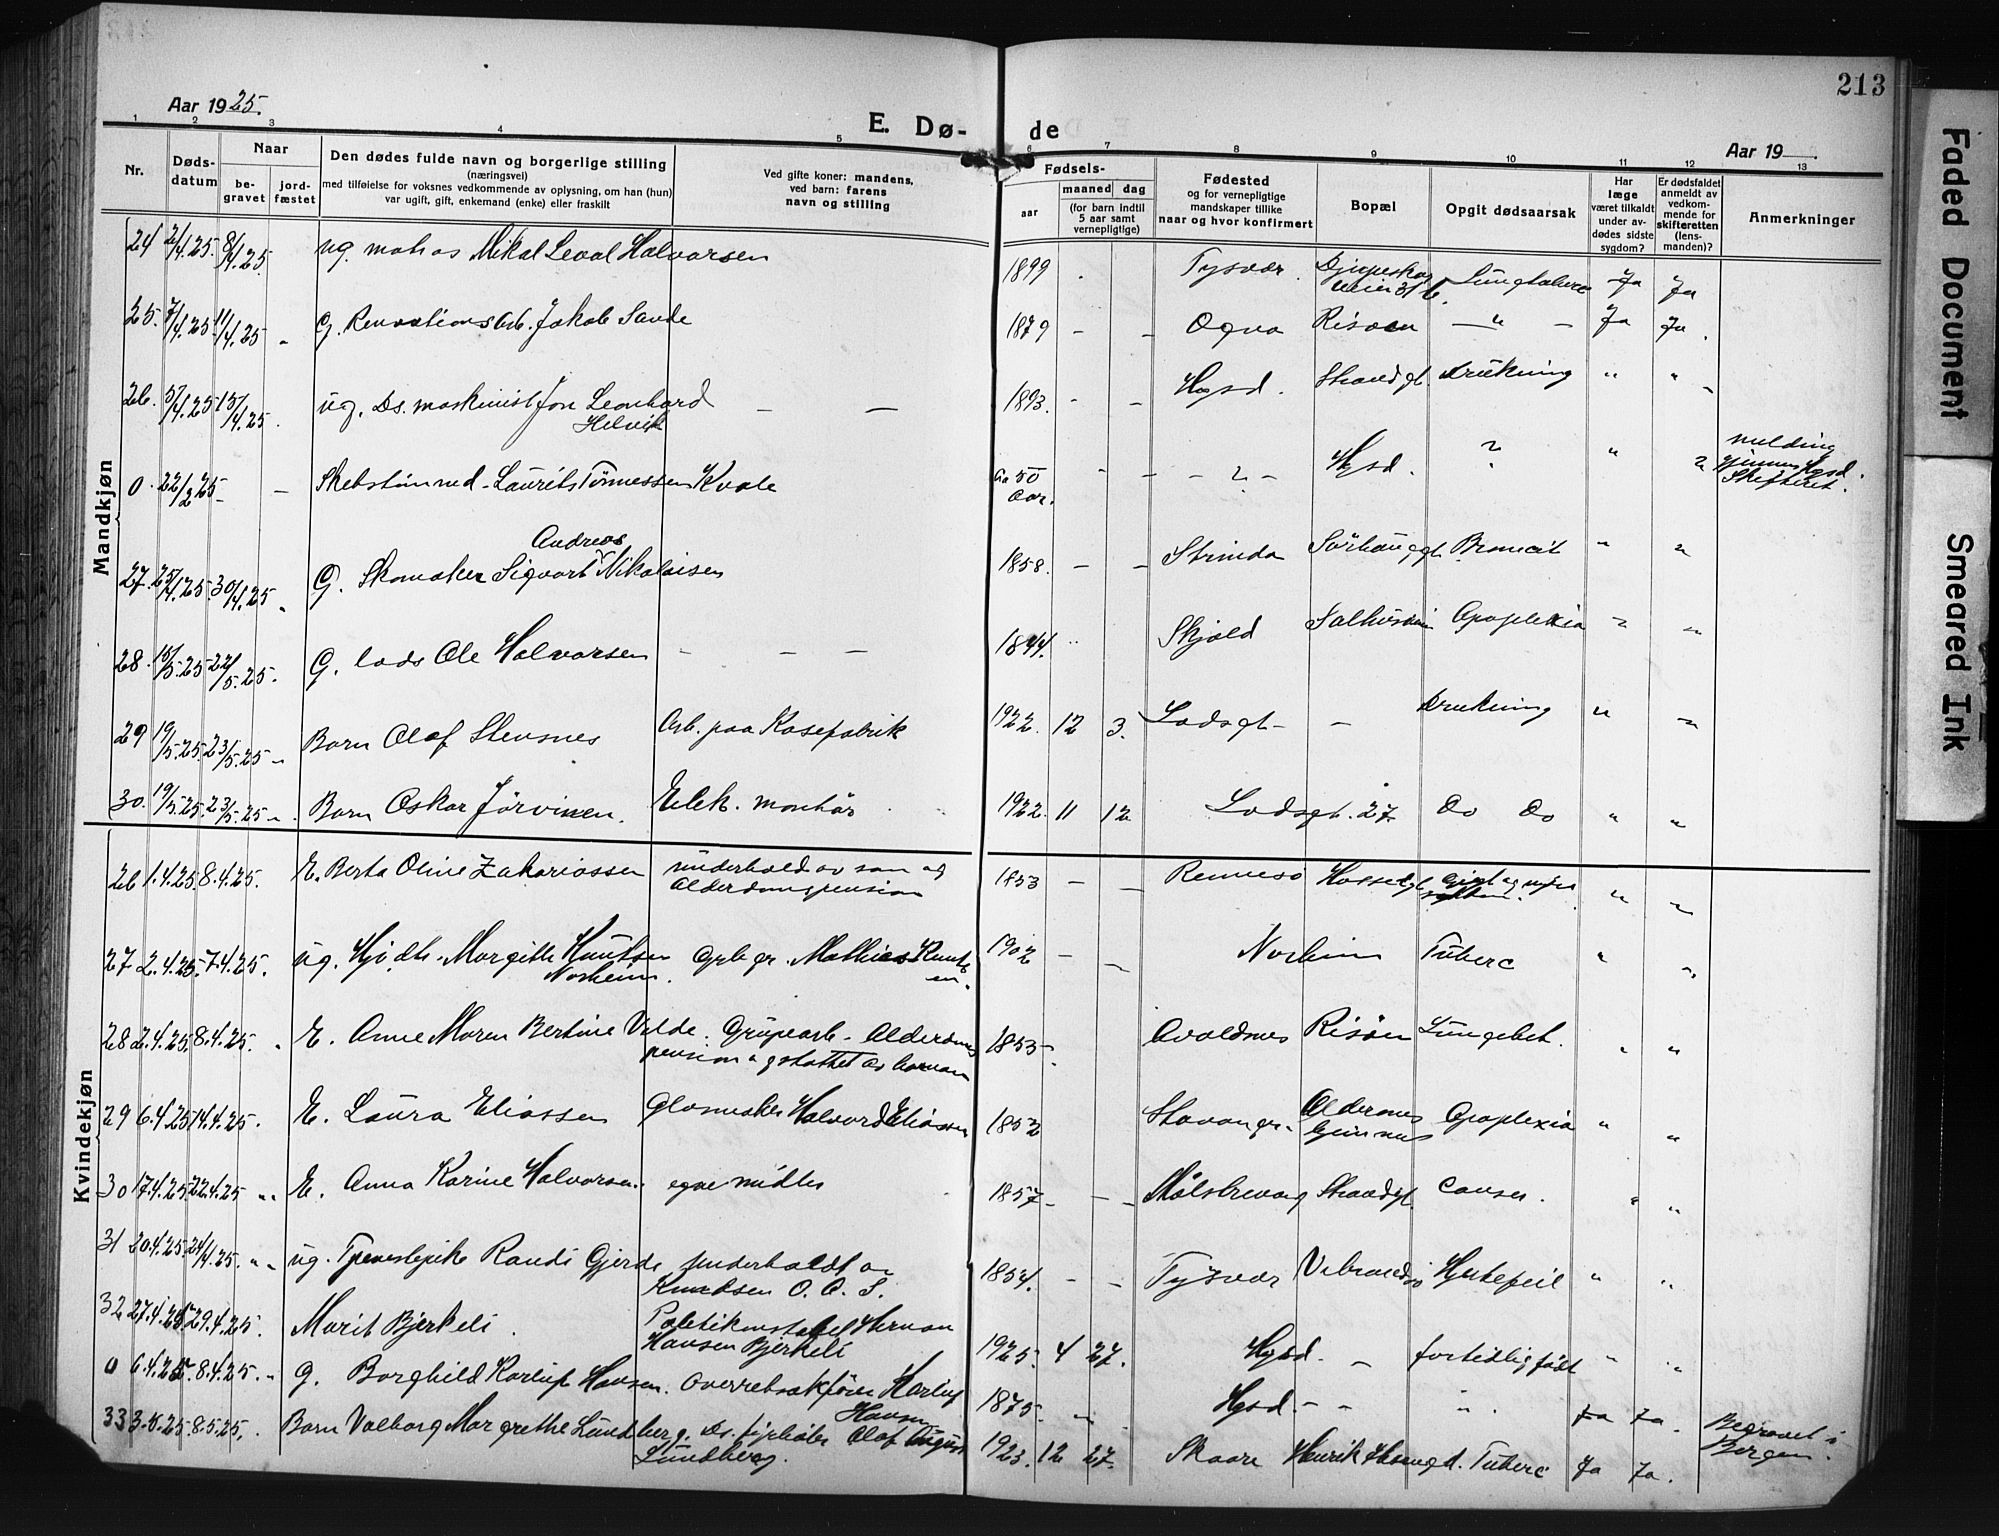 213
Aar 1925.
E. Dø-
de
Aar 19
1 2 3 4 5 6 7 8 9 10 11 12 13
Nr.
Døds-
datum
Naar
be-
gravet
jord-
fæstet
Den dødes fulde navn og borgerlige stilling
(næringsvei)
med tilføielse for voksnes vedkommende av oplysning, om han (hun)
var ugift, gift, enkemand (enke) eller fraskilt
Ved gifte koner: mandens,
ved barn: farens
navn og stilling
Fødsels-
aar
maaned dag
(for barn indtil
5 aar samt
vernepligtige)
Fødested
og for vernepligtige
mandskaper tillike
naar og hvor konfirmert
Bopæl
Opgit dødsaarsak
Har
læge
været tilkaldt
under av-
dødes sidste
sygdom?
Er dødsfaldet
anmeldt av
vedkom-
mende for
skifteretten
(lens-
manden)?
Anmerkninger
Mandkjøn
24 2/4.25. 8/4.25. ug. matros Mikal Leval Halvorsen 1899 Tysvær Ja Ja
25. 7/4.25 11/4.25 G. Renovationsarb. Jakob Sande 1879 - - Ogna Risøen — " — Ja Ja.
26. 5/4.25 15/4.25. ug. Ds. maskinist Jon Leonhard — — 1893. - - Hgsd. Strandgt. Drukning " "
Helvik
0. 22/2 25 - Laurits Tønnessen Kvale ca 50 - - - " - Hgsd. " " "
Aar.
Hgsd.
Skifteret.
Andreas
27. 25/4.25. 30/4.25 G. Skomaker Sigvart Nikolaisen 1858. - - Strinda " "
28. 15/5.25 22/5.25. G. lods Ole Halvorsen - - - 1844. " Skjold Apoplexia " "
29 19/5.25. 23/5.25 " Barn Olaf Stensnes Arb. paa Kassefabrik 1922. 12 3. Lodsgt - - Drukning " "
30. 19/5.25. 23/5.25 " Barn Oskar Järvinen. Elek. montør 1922. 11 12 Lodsgt. 27. Do Do " "
Kvindekjøn
26 1.4.25 8.4.25. E. Berta Oline Zakariassen underhold av søn og 1853 - - Rennesø " "
Alderdomspension
27 2.4.25. 7.4.25. ug. Margithe Knutsen Mathias Knuts 1902 - - Norheim Tuberc " "
Norheim. en.
28 2.4.25. 8.4.25. E. Anne Maren Bertine Velde. Alderdoms 1853 - Avaldsnes Risøen Lungebet. " "
pension og støttet av barna
29 6.4.25 14.4.25. E. Laura Eliassen Glasmester Halvord Eliassen 1852 Stavanger - Alderdoms Apoplexia " "
hjemmet
30 17.4.25. 22.4.25 " " E. Anna Karine Halvorsen. egne midler 1857 - - - Strandgt. Cancer. " "
31 20.4.25. 24/4.25. " " ug. Tjenestepike Randi Gjerde underholdt av 1854. - - Tysvær Hjertefeil " "
Knudtsen O. A. S.
32 27.4.25 29.4.25. Marit Bjerkeli. Politikonstabel Herman 1925. 4 27. Hgsd. - fortidlig født " "
Hansen Bjerkeli
0 6.4.25 8.4.25. " G. Borghild Hansen. overretssakfører 1875. " Hgsd. - " " Ja Ja. Begravet i
Hansen Bergen.
33 3.5.25 8.5.25. Barn Valborg Margrethe Lundberg. Ds. fyrbøter Olaf August 1923. 12 27. Skaare Tuberc Ja Ja.
Lundberg.
Faded Document
Smeared Ink